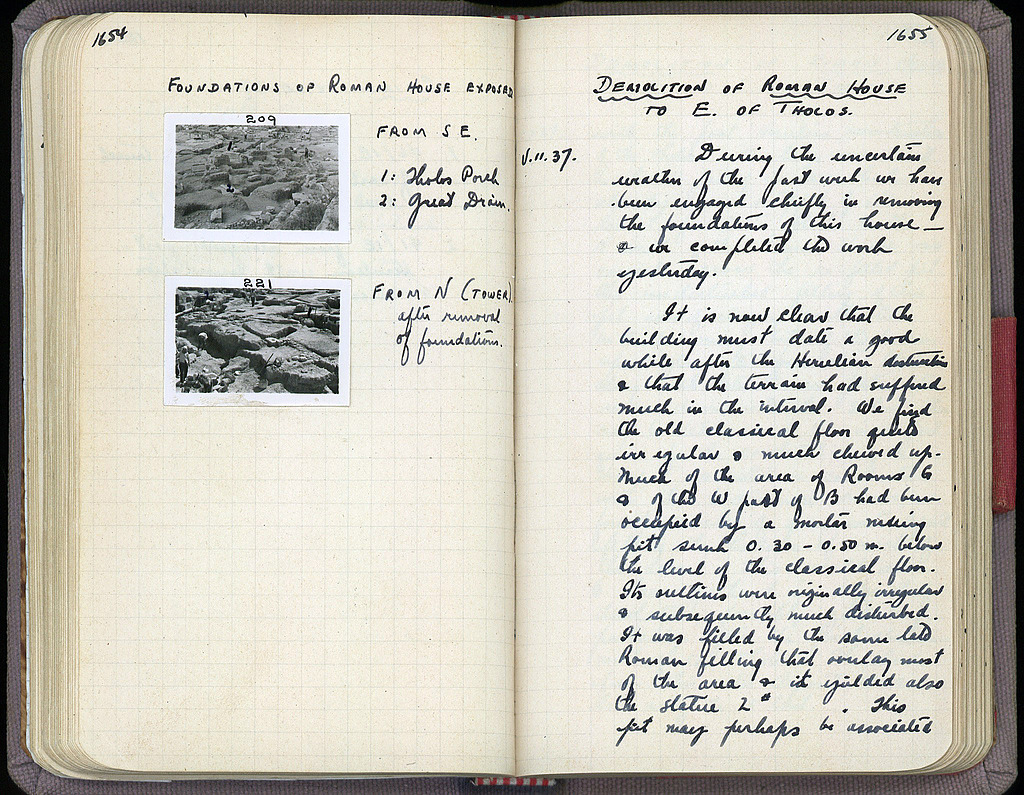 1654
FOUNDATIONS OF ROMAN HOUSE EXPOSED
209
FROM S E.
1: Tholos Porch
2: Great Drain.
221
FROM N (TOWER)
after removal
of foundations.
1655
DEMOLITION OF ROMAN HOUSE
TO E. OF THOLOS.
V.11.37.
During the uncertain
weather of the past week we have
been engaged chiefly in removing
the foundations of this house –
& we completed the work
yesterday.
It is now clear that the
building must date a good
while after the Herulian destruction
& that the terrain had suffered
much in the interval. We find
the old classical floor quite
irregular & much chewed up.
Much of the area of Rooms G
& of the W part of B had been
occupied by a mortar mixing
pit sunk 0.30 – 0.50 m. below
the level of the classical floor.
Its outlines were originally irregular
& subsequently much disturbed.
It was filled by the same late
Roman filling that overlay most
of the area & it yielded also
the statue 2 # . This
pit may perhaps be associated